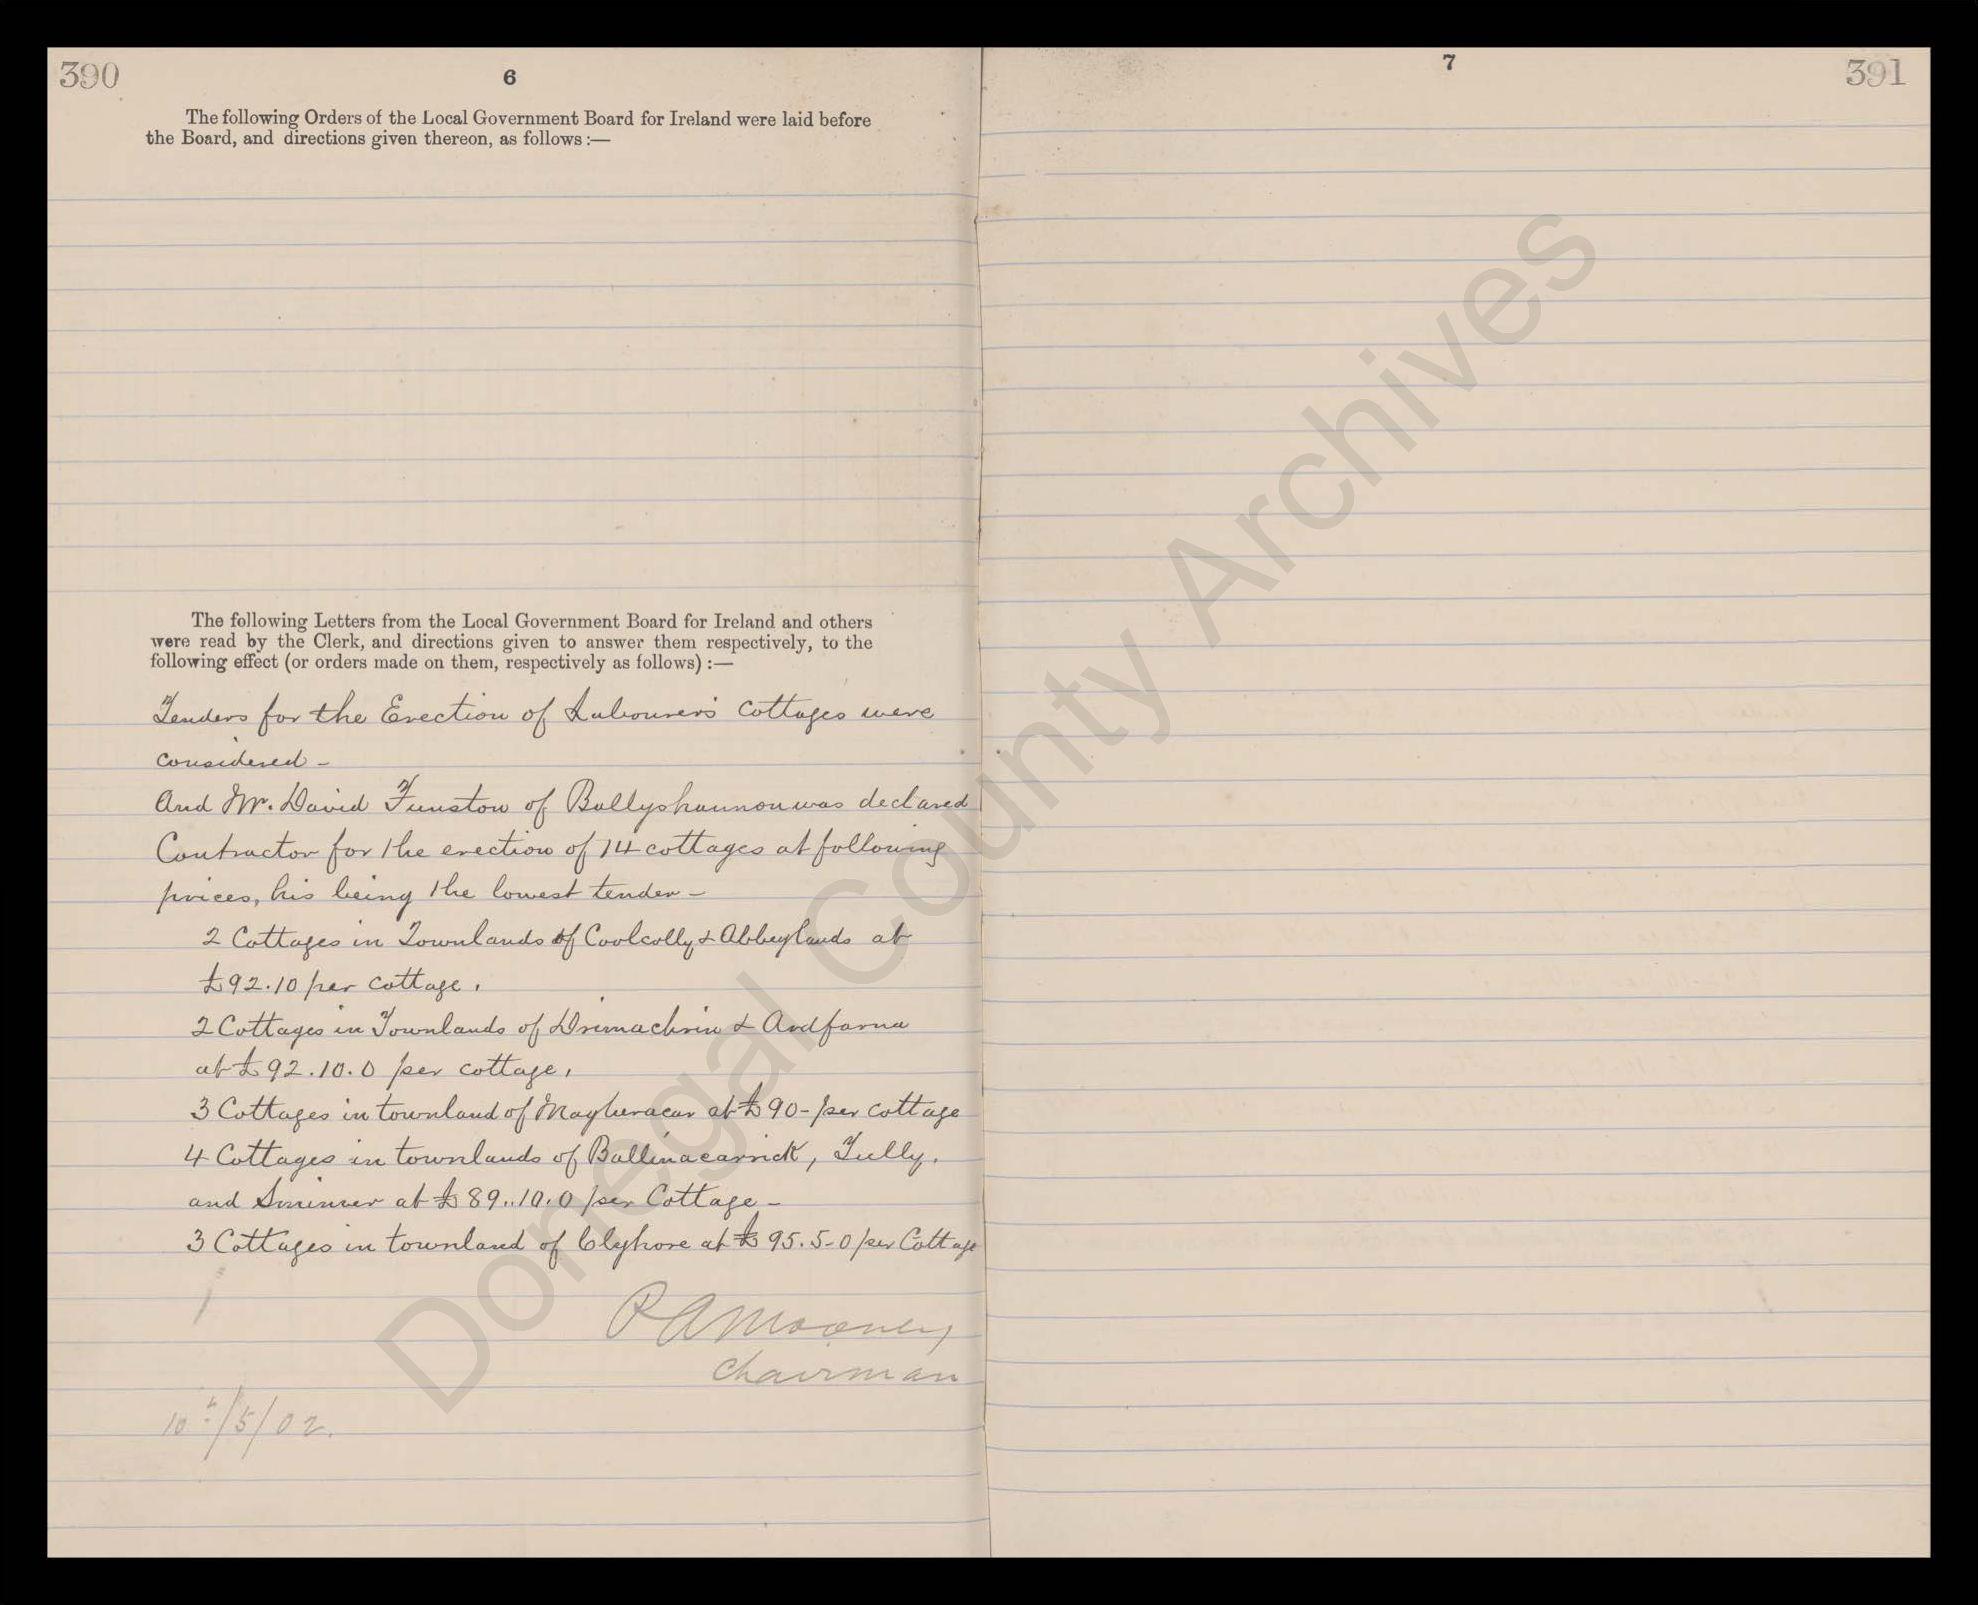 390
6
The following Orders of the Local Government Board for Ireland were laid before
the Board, and directions given thereon, as follows :—
The following Letters from the Local Government Board for Ireland and others
were read by the Clerk, and directions given to answer them respectively, to the
following effect (or orders made on them, respectively as follows) :—
Tenders for the Erection of Labourers Cottages were
considered -
And Mr. David Funston of Ballyshannon was declared
Contractor for the erection of 14 cottages at following
prices, his being the lowest tender -
2 Cottages in Townlands of Coolcolly & Abbeylands at
£92.10 per cottage.
2 Cottages in Townlands of Drimachrin & Ardfarna
at £92.10.0 per cottage.
3 Cottages in townland of Magheracar at £90- per cottage
4 Cottages in townlands of Ballinacarrick, Tully,
and Sminver at £89..10.0 per Cottage -
3 Cottages in townland of Clyhore at £95.5-0 per Cottage
P A Mooney
Chairman
10th/5/02.
7
391
Donegal County Archives